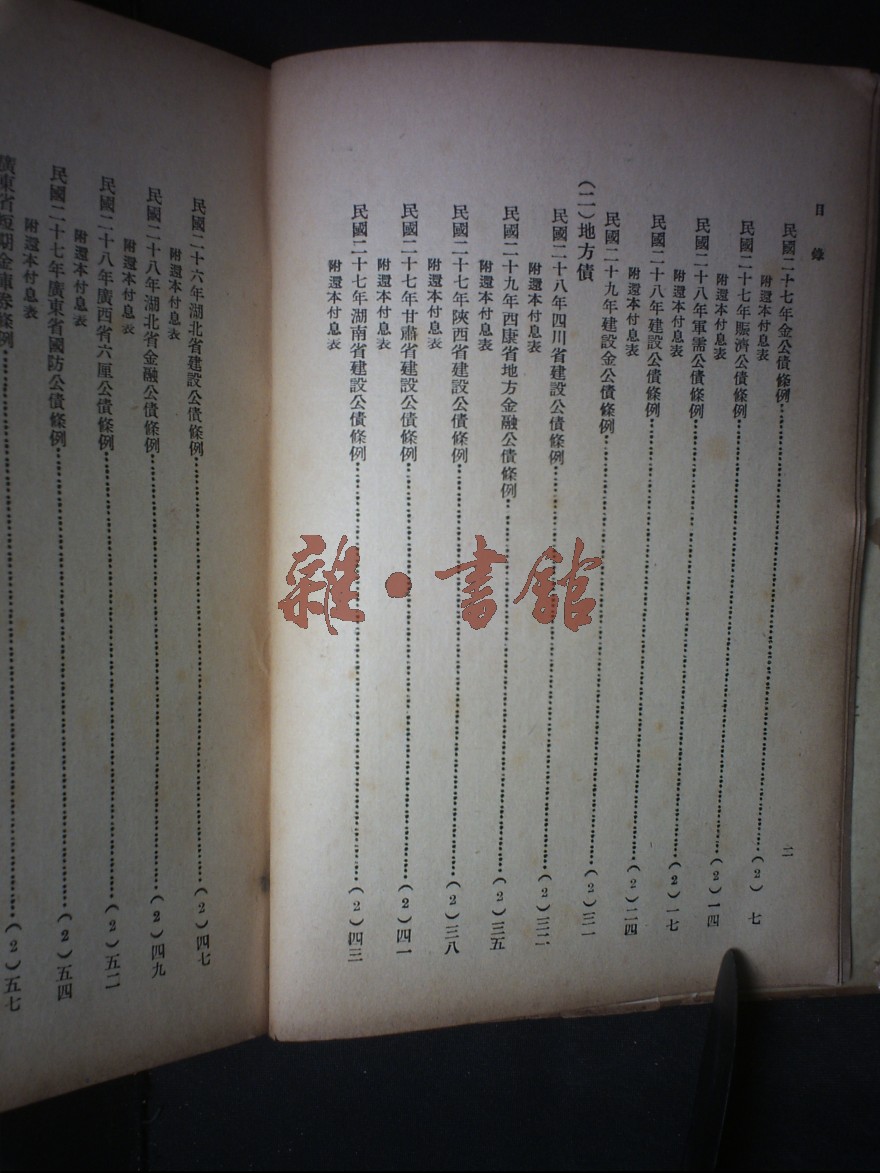 目錄
二
民國二十七年金公債條例……(2)七
附還本付息表
民國二十七年賑濟公債條例……(2)一四
附還本付息表
民國二十八年軍需公債條例……(2)一七
附還本付息表
民國二十八年建設公債條例……(2)二四
附還本付息表
民國二十九年建設金公債條例……(2)三一
(二)地方債
民國二十八年四川省建設公債條例……(2)三二
附還本付息表
民國二十九年西康省地方金融公債條例……(2)三五
附還本付息表
民國二十七年陝西省建設公債條例……(2)三八
附還本付息表
民國二十七年甘肅省建設公債條例……(2)四一
附還本付息表
民國二十七年湖南省建設公債條例……(2)四三
附還本付息表
民國二十六年湖北省建設公債條例……(2)四七
附還本付息表
民國二十八年湖北省金融公債條例……(2)四九
附還本付息表
民國二十八年廣西省六厘公債條例……(2)五二
附還本付息表
民國二十七年廣東省國防公債條例……(2)五四
附還本付息表
廣東省短期金庫券條例……(2)五七
雜·書館